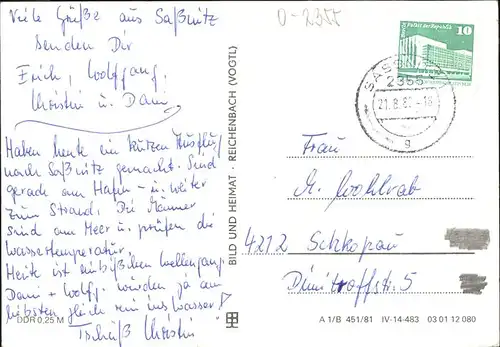 Viele Grüße aus Saßnitz
senden Dir
Erich, Wolfgang,
Christin u. Dani
Haben heute ein kurzen Ausflug
nach Saßnitz gemacht. Sind
gerade am Hafen u. weiter
zum Strand. Die Männer
sind am Meer u. prüfen die
Wassertemperatur.
Heute ist ein bißchen Wellengang.
Dani + Wolfg. würden ja am
liebsten gleich rein ins Wasser!
Tschüß Christin
DDR 0,25 M
BILD UND HEIMAT · REICHENBACH (VOGTL)
O-2355
Palast der Republik
10
SASSNITZ
2355
21.8.82-18
g
Frau
M. Wohlrab
4212 Schkopau
Dimitroffstr. 5
A 1/B 451/81 IV-14-483 03 01 12 080